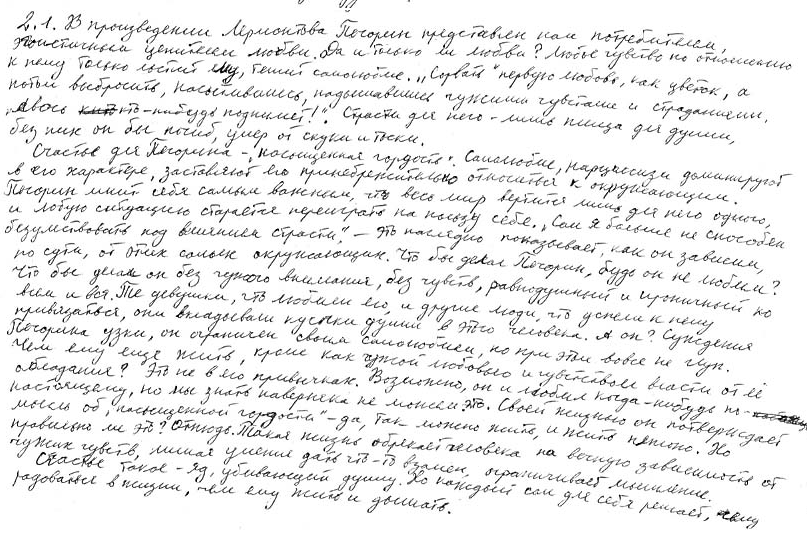 2.1. В произведении Лермонтова Печорин представлен нам потребителем,
эгоистичным ценителем любви. Да и только ли любви? Любое чувство по отношению
к нему только льстит ему, тешит самолюбие. "Сорвать" первую любовь, как цветок, а
потом выбросить, насытившись, надышавшись чужими чувствами и страданиями,
"авось кто-нибудь поднимет!". Страсти для него - лишь пища для души,
без них он бы погиб, умер от скуки и тоски.
Счастье для Печорина - "насыщенная гордость". Самолюбие, нарциссизм доминируют
в его характере, заставляют его принебрежительно относиться к окружающим.
Печорин мнит себя самым важным, что весь мир вертится лишь для него одного,
и любую ситуацию старается переиграть на пользу себе. "Сам я больше не способен
безумствовать под влиянием страсти", - это наглядно показывает, как он зависим,
по сути, от этих самых окружающих. Что бы делал Печорин, будь он не любим?
Что бы делал он без чужого внимания, без чувств, равнодушный и ироничный ко
всем и вся. Те девушки, что любили его, и другие люди, что успели к нему
привязаться, они вкладывали кусочки души в этого человека. А он? Суждения
Печорина узки, он ограничен своим самолюбием, но при этом вовсе не глуп.
Чем ему ещё жить, кроме как чужой любовью и чувством власти от её
обладания? Это не в его привычках. Возможно, он и любил когда-нибудь по-
настоящему, но мы знать наверняка не можем это. Своей жизнью он потверждает
мысль об "насыщенной гордости" - да, так можно жить, и жить неплохо. Но
правильно ли это? Отнюдь. Такая жизнь обрекает человека на вечную зависимость от
чужих чувств, лишая умения дать что-то взамен, ограничивает мышление.
Счастье такое - яд, убивающий душу. Но каждый сам для себя решает, чему
радоваться в жизни, чем ему жить и дышать.